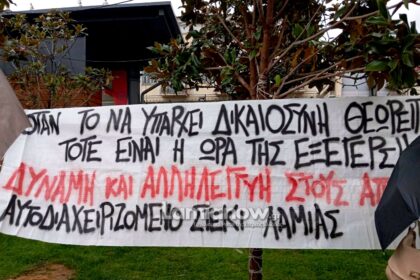 ΌΤΑΝ ΤΟ ΝΑ ΥΠΑΡΧΕΙ ΔΙΚΑΙΟΣΥΝΗ ΘΕΩΡΕΙ
ΤΟΤΕ ΕΙΝΑΙ Η ΩΡΑ ΤΗΣ ΕΞΕΓΕΡΣΗ
ΔΥΝΑΜΗ ΚΑΙ ΑΛΛΗΛΕΓΓΥΗ ΣΤΟΥΣ ΑΠ
ΑΥΤΟΔΙΑΧΕΙΡΙΖΟΜΕΝΟ ΣΤΕΚΙ ΛΑΜΙΑΣ